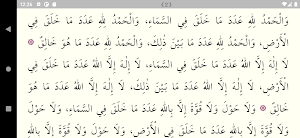 12:36
وَالْحَمْدُ لِلَّهِ عَدَدَ مَا خَلَقَ فِي السَّمَاءِ، وَالْحَمْدُ لِلَّهِ عَدَدَ مَا خَلَقَ فِي
الْأَرْضِ، وَالْحَمْدُ لِلَّهِ عَدَدَ مَا بَيْنَ ذَلِكَ، وَالْحَمْدُ لِلَّهِ عَدَدَ مَا هُوَ خَالِقٌ
لَا إِلَهَ إِلَّا اللهُ عَدَدَ مَا خَلَقَ فِي السَّمَاءِ، لَا إِلَهَ إِلَّا اللهُ عَدَدَ مَا خَلَقَ فِي
الْأَرْضِ، لَا إِلَهَ إِلَّا اللهُ عَدَدَ مَا بَيْنَ ذَلِكَ، لَا إِلَهَ إِلَّا اللهُ عَدَدَ مَا هُوَ
خَالِقٌ وَلَا حَوْلَ وَلَا قُوَّةَ إِلَّا بِاللهِ عَدَدَ مَا خَلَقَ فِي السَّمَاءِ، وَلَا حَوْلَ
وَلَا قُوَّةَ إِلَّا بِاللهِ عَدَدَ مَا خَلَقَ فِي الْأَرْضِ، وَلَا حَوْلَ وَلَا قُوَّةَ إِلَّا بِاللهِ